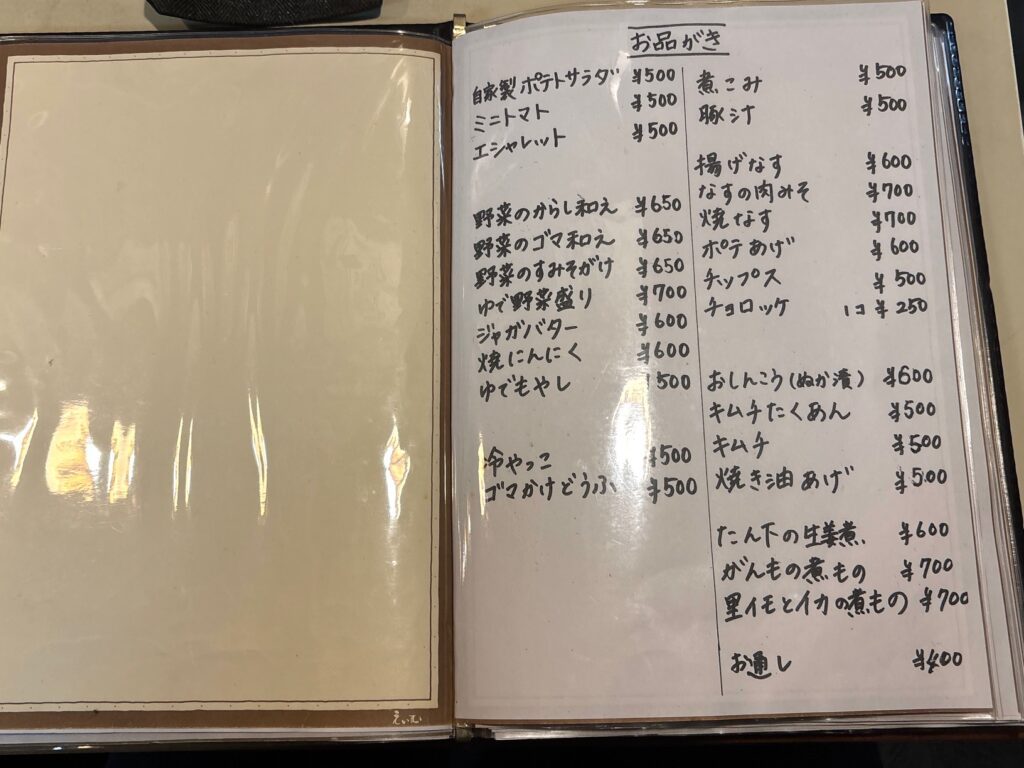 お品がき
自家製ポテトサラダ ¥500
ミニトマト ¥500
エシャレット ¥500
野菜のからし和え ¥650
野菜のゴマ和え ¥650
野菜のすみそがけ ¥650
ゆで野菜盛り ¥700
ジャガバター ¥600
焼にんにく ¥600
ゆでもやし ¥500
冷やっこ ¥500
ゴマかけどうふ ¥500
煮こみ ¥500
豚汁 ¥500
揚げなす ¥600
なすの肉みそ ¥700
焼なす ¥700
ポテあげ ¥600
チップス ¥500
チョロッケ 1コ ¥250
おしんこう(ぬか漬) ¥600
キムチたくあん ¥500
キムチ ¥500
焼き油あげ ¥500
たん下の生姜煮 ¥600
がんもの煮もの ¥700
里イモとイカの煮もの ¥700
お通し ¥400
えいむ